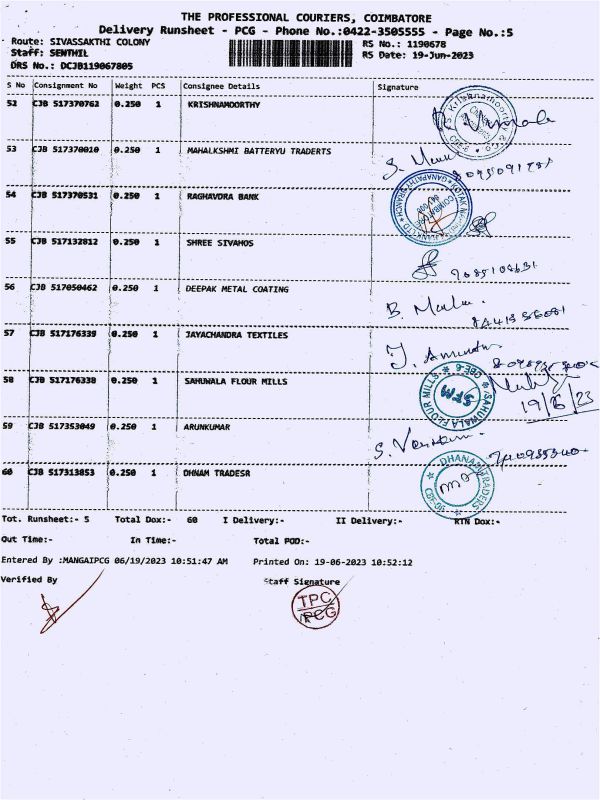 THE PROFESSIONAL COURIERS, COIMBATORE
Delivery Runsheet - PCG - Phone No.:0422-3505555 - Page No.:5
Route: SIVASSAKTHI COLONY RS No.: 1190678
Staff: SENTHIL RS Date: 19-Jun-2023
DRS No.: DCJB119067805
S No Consignment No Weight PCS Consignee Details Signature
52 CJB 517370762 0.250 1 KRISHNAMOORTHY
53 CJB 517370010 0.250 1 MAHALKSHMI BATTERYU TRADERTS
54 CJB 517370531 0.250 1 RAGHAVDRA BANK
55 CJB 517132812 0.250 1 SHREE SIVAHOS
56 CJB 517050462 0.250 1 DEEPAK METAL COATING
B
57 CJB 517176339 0.250 1 JAYACHANDRA TEXTILES
58 CJB 517176338 0.250 1 SAHUWALA FLOUR MILLS
SAHUWALA FLOUR MILLS
SFM
19/6/23
59 CJB 517353049 0.250 1 ARUNKUMAR
60 CJB 517313853 0.250 1 DHNAM TRADESR
DHANAM TRADERS
Tot. Runsheet:- 5 Total Dox:- 60 I Delivery:- II Delivery:- RTN Dox:-
Out Time:- In Time:- Total POD:-
Entered By :MANGAIPCG 06/19/2023 10:51:47 AM Printed On: 19-06-2023 10:52:12
Verified By Staff Signature
TPC
PCG